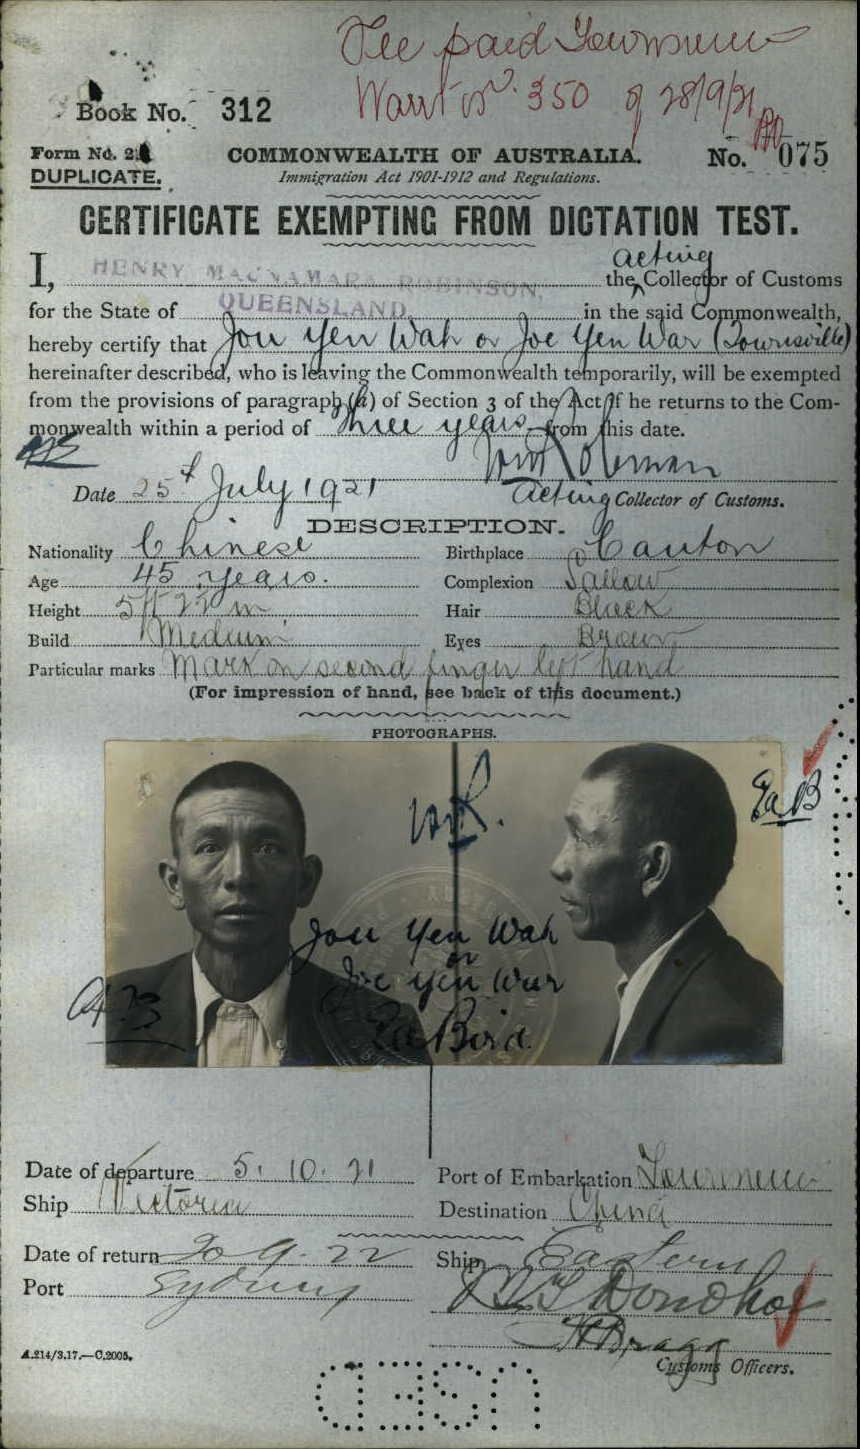 Fee paid Townsville
Warrt No. 350 of 28/9/21
Book No. 312
Form No. 21
COMMONWEALTH OF AUSTRALIA.
No. 075
DUPLICATE.
Immigration Act 1901-1912 and Regulations.
CERTIFICATE EXEMPTING FROM DICTATION TEST.
acting
I, HENRY MACNAMARA ROBINSON, the Collector of Customs
for the State of QUEENSLAND. in the said Commonwealth,
hereby certify that Jou Yen Wah or Joe Yen War (Townsville)
hereinafter described, who is leaving the Commonwealth temporarily, will be exempted
from the provisions of paragraph (a) of Section 3 of the Act if he returns to the Com-
monwealth within a period of three years from this date.
Date 25th July 1921
Acting Collector of Customs.
DESCRIPTION.
Nationality Chinese Birthplace Canton
Age 45 years. Complexion Sallow
Height 5ft 2½ in Hair Black
Build Medium Eyes Brown
Particular marks Mark on second finger left hand
(For impression of hand, see back of this document.)
PHOTOGRAPHS.
WR.
EaB
Jou Yen Wah
or
Joe Yen War
EaBird.
Date of departure 5. 10. 21 Port of Embarkation Townsville
Ship Victoria Destination China
Date of return 20-9-22 Ship Eastern
Port Sydney
Donohoe
H Bragg
A.214/3.17.—C.2005.
Customs Officers.
USED